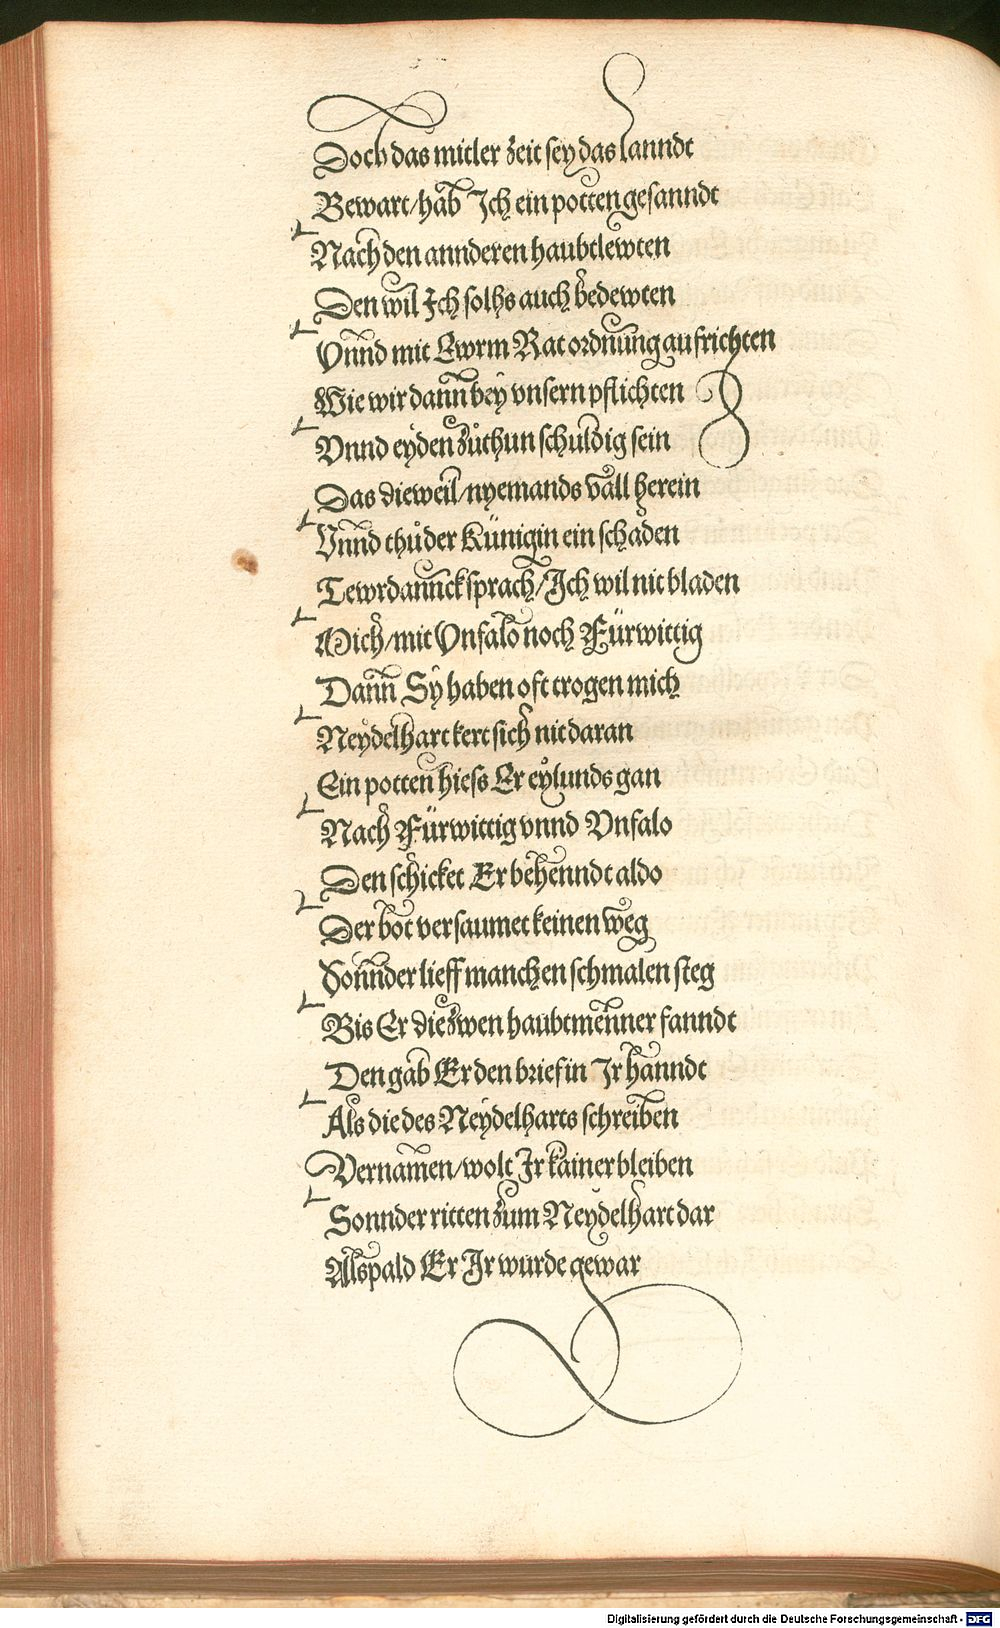 Doch das mitler zeit sey das lanndt
Bewart/hab Ich ein potten gesanndt
Nach den annderen haubtlewten
Den wil Ich solhs auch bedewten
Vnnd mit Ewrm Rat ordnung aufrichten
Wie wir dann bey vnsern pflichten
Vnnd eyden zůthun schuldig sein
Das dieweil/nyemands vall herein
Vnnd thů der Künigin ein schaden
Tewrdannck sprach/Ich wil nit bladen
Mich/mit Vnfalo noch Fürwittig
Dann Sy haben oft trogen mich
Neydelhart kert sich nit daran
Ein potten hiess Er eylunds gan
Nach Fürwittig vnnd Vnfalo
Den schicket Er behenndt aldo
Der bot versaumet keinen weg
Sonnder lieff manchen schmalen steg
Bis Er die zwen haubtmenner fanndt
Den gab Er den brief in Ir hanndt
Als die des Neydelharts schreiben
Vernamen/wolt Ir kainer bleiben
Sonnder ritten zum Neydelhart dar
Alspald Er Ir wurde gewar
Digitalisierung gefördert durch die Deutsche Forschungsgemeinschaft - DFG